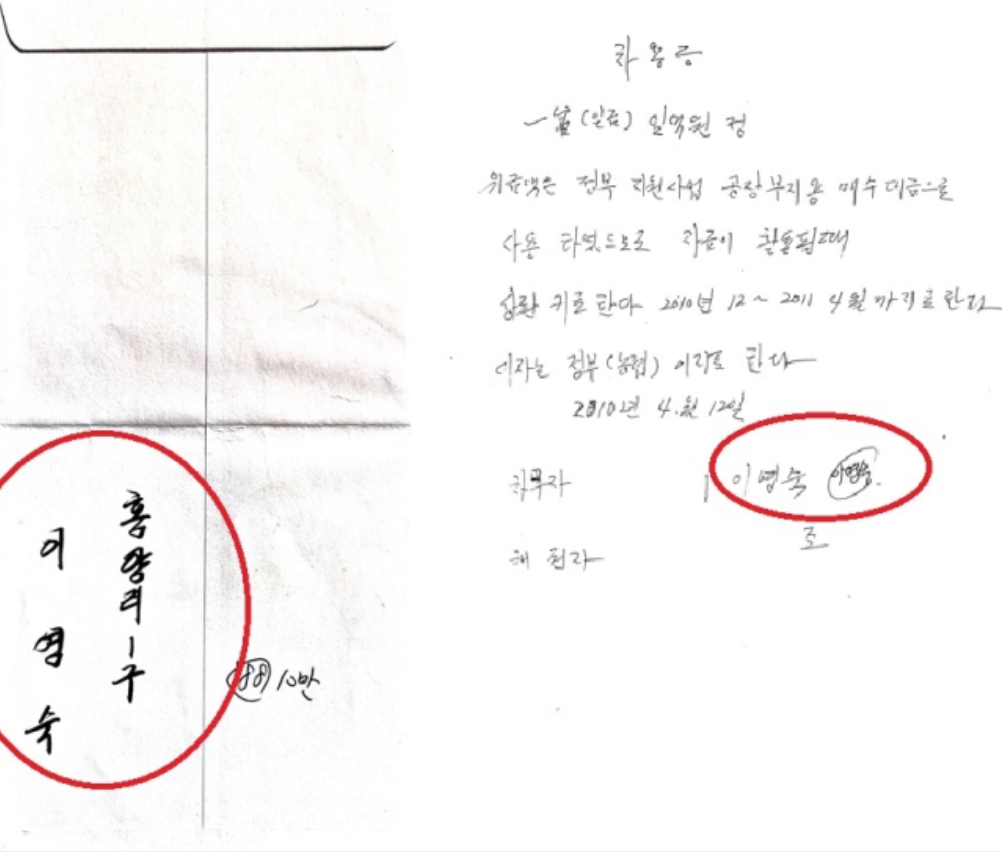 홍양리 1구
이영숙
88 10만
차용증
一金(일금) 일억원 정
위금액은 정부 지원사업 공장부지용 매수대금으로
사용 하였으므로 자금이 활용될때
상환 키로 한다 2010년 12 ~ 2011 4월까지로 한다
이자는 정부(농협) 이자로 한다
2010년 4.월 12일
채무자 이영숙 이영숙
조
채권자